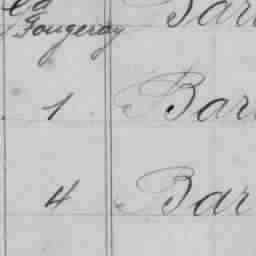 Bar
Fougeray
1 Bar
4 Bar